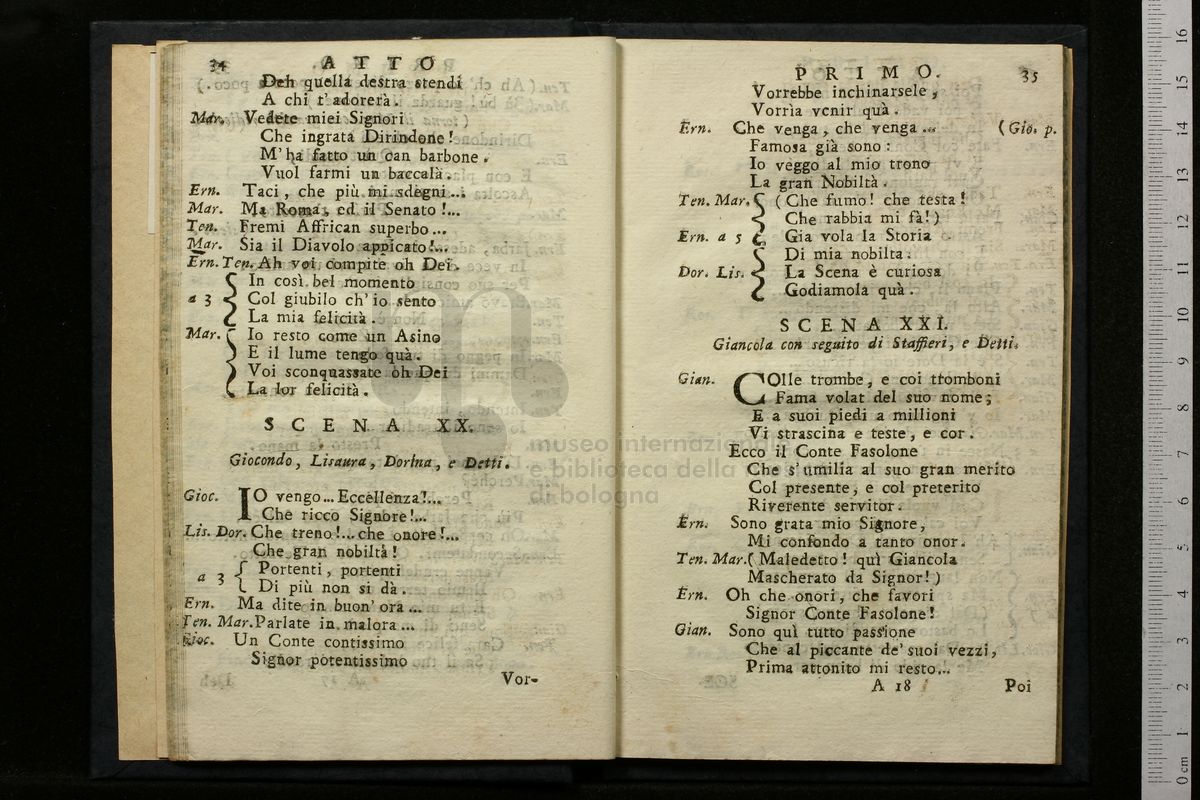 34 ATTO
Deh quella destra stendi
A chi t'adorerà.
Mar. Vedete miei Signori
Che ingrata Dirindone!
M'ha fatto un can barbone.
Vuol farmi un baccalà.
Ern. Taci, che più mi sdegni...
Mar. Ma Roma, ed il Senato!...
Ten. Fremi Affrican superbo...
Mar. Sia il Diavolo appicato!...
Ern. Ten. Ah voi compite oh Dei.
In così bel momento
a 3 Col giubilo ch'io sento
La mia felicità.
Mar. Io resto come un Asino
E il lume tengo quà.
Voi sconquassate oh Dei
La lor felicità.
SCENA XX.
Giocondo, Lisaura, Dorina, e Detti.
Gioc. IO vengo... Eccellenza!...
Che ricco Signore!...
Lis. Dor. Che treno!... che onore!...
Che gran nobiltà!
a 3 Portenti, portenti
Di più non si dà.
Ern. Ma dite in buon' ora...
Ten. Mar. Parlate in malora...
Gioc. Un Conte contissimo
Signor potentissimo
Vor-
PRIMO. 35
Vorrebbe inchinarsele,
Vorrìa venir quà.
Ern. Che venga, che venga... (Gio. p.
Famosa già sono:
Io veggo al mio trono
La gran Nobiltà.
Ten. Mar. (Che fumo! che testa!
Che rabbia mi fà!)
Ern. a 5 Gia vola la Storia
Di mia nobiltà.
Dor. Lis. La Scena è curiosa
Godiamola quà.
SCENA XXI.
Giancola con seguito di Staffieri, e Detti.
Gian. COlle trombe, e coi tromboni
Fama volat del suo nome;
E a suoi piedi a millioni
Vi strascina e teste, e cor.
Ecco il Conte Fasolone
Che s'umilia al suo gran merito
Col presente, e col preterito
Riverente servitor.
Ern. Sono grata mio Signore,
Mi confondo a tanto onor.
Ten. Mar. (Maledetto! quì Giancola
Mascherato da Signor!)
Ern. Oh che onori, che favori
Signor Conte Fasolone!
Gian. Sono quì tutto passione
Che al piccante de' suoi vezzi,
Prima attonito mi resto...
A 18 Poi
museo internazionale
e biblioteca della
di bologna
0 cm 1 2 3 4 5 6 7 8 9 10 11 12 13 14 15 16